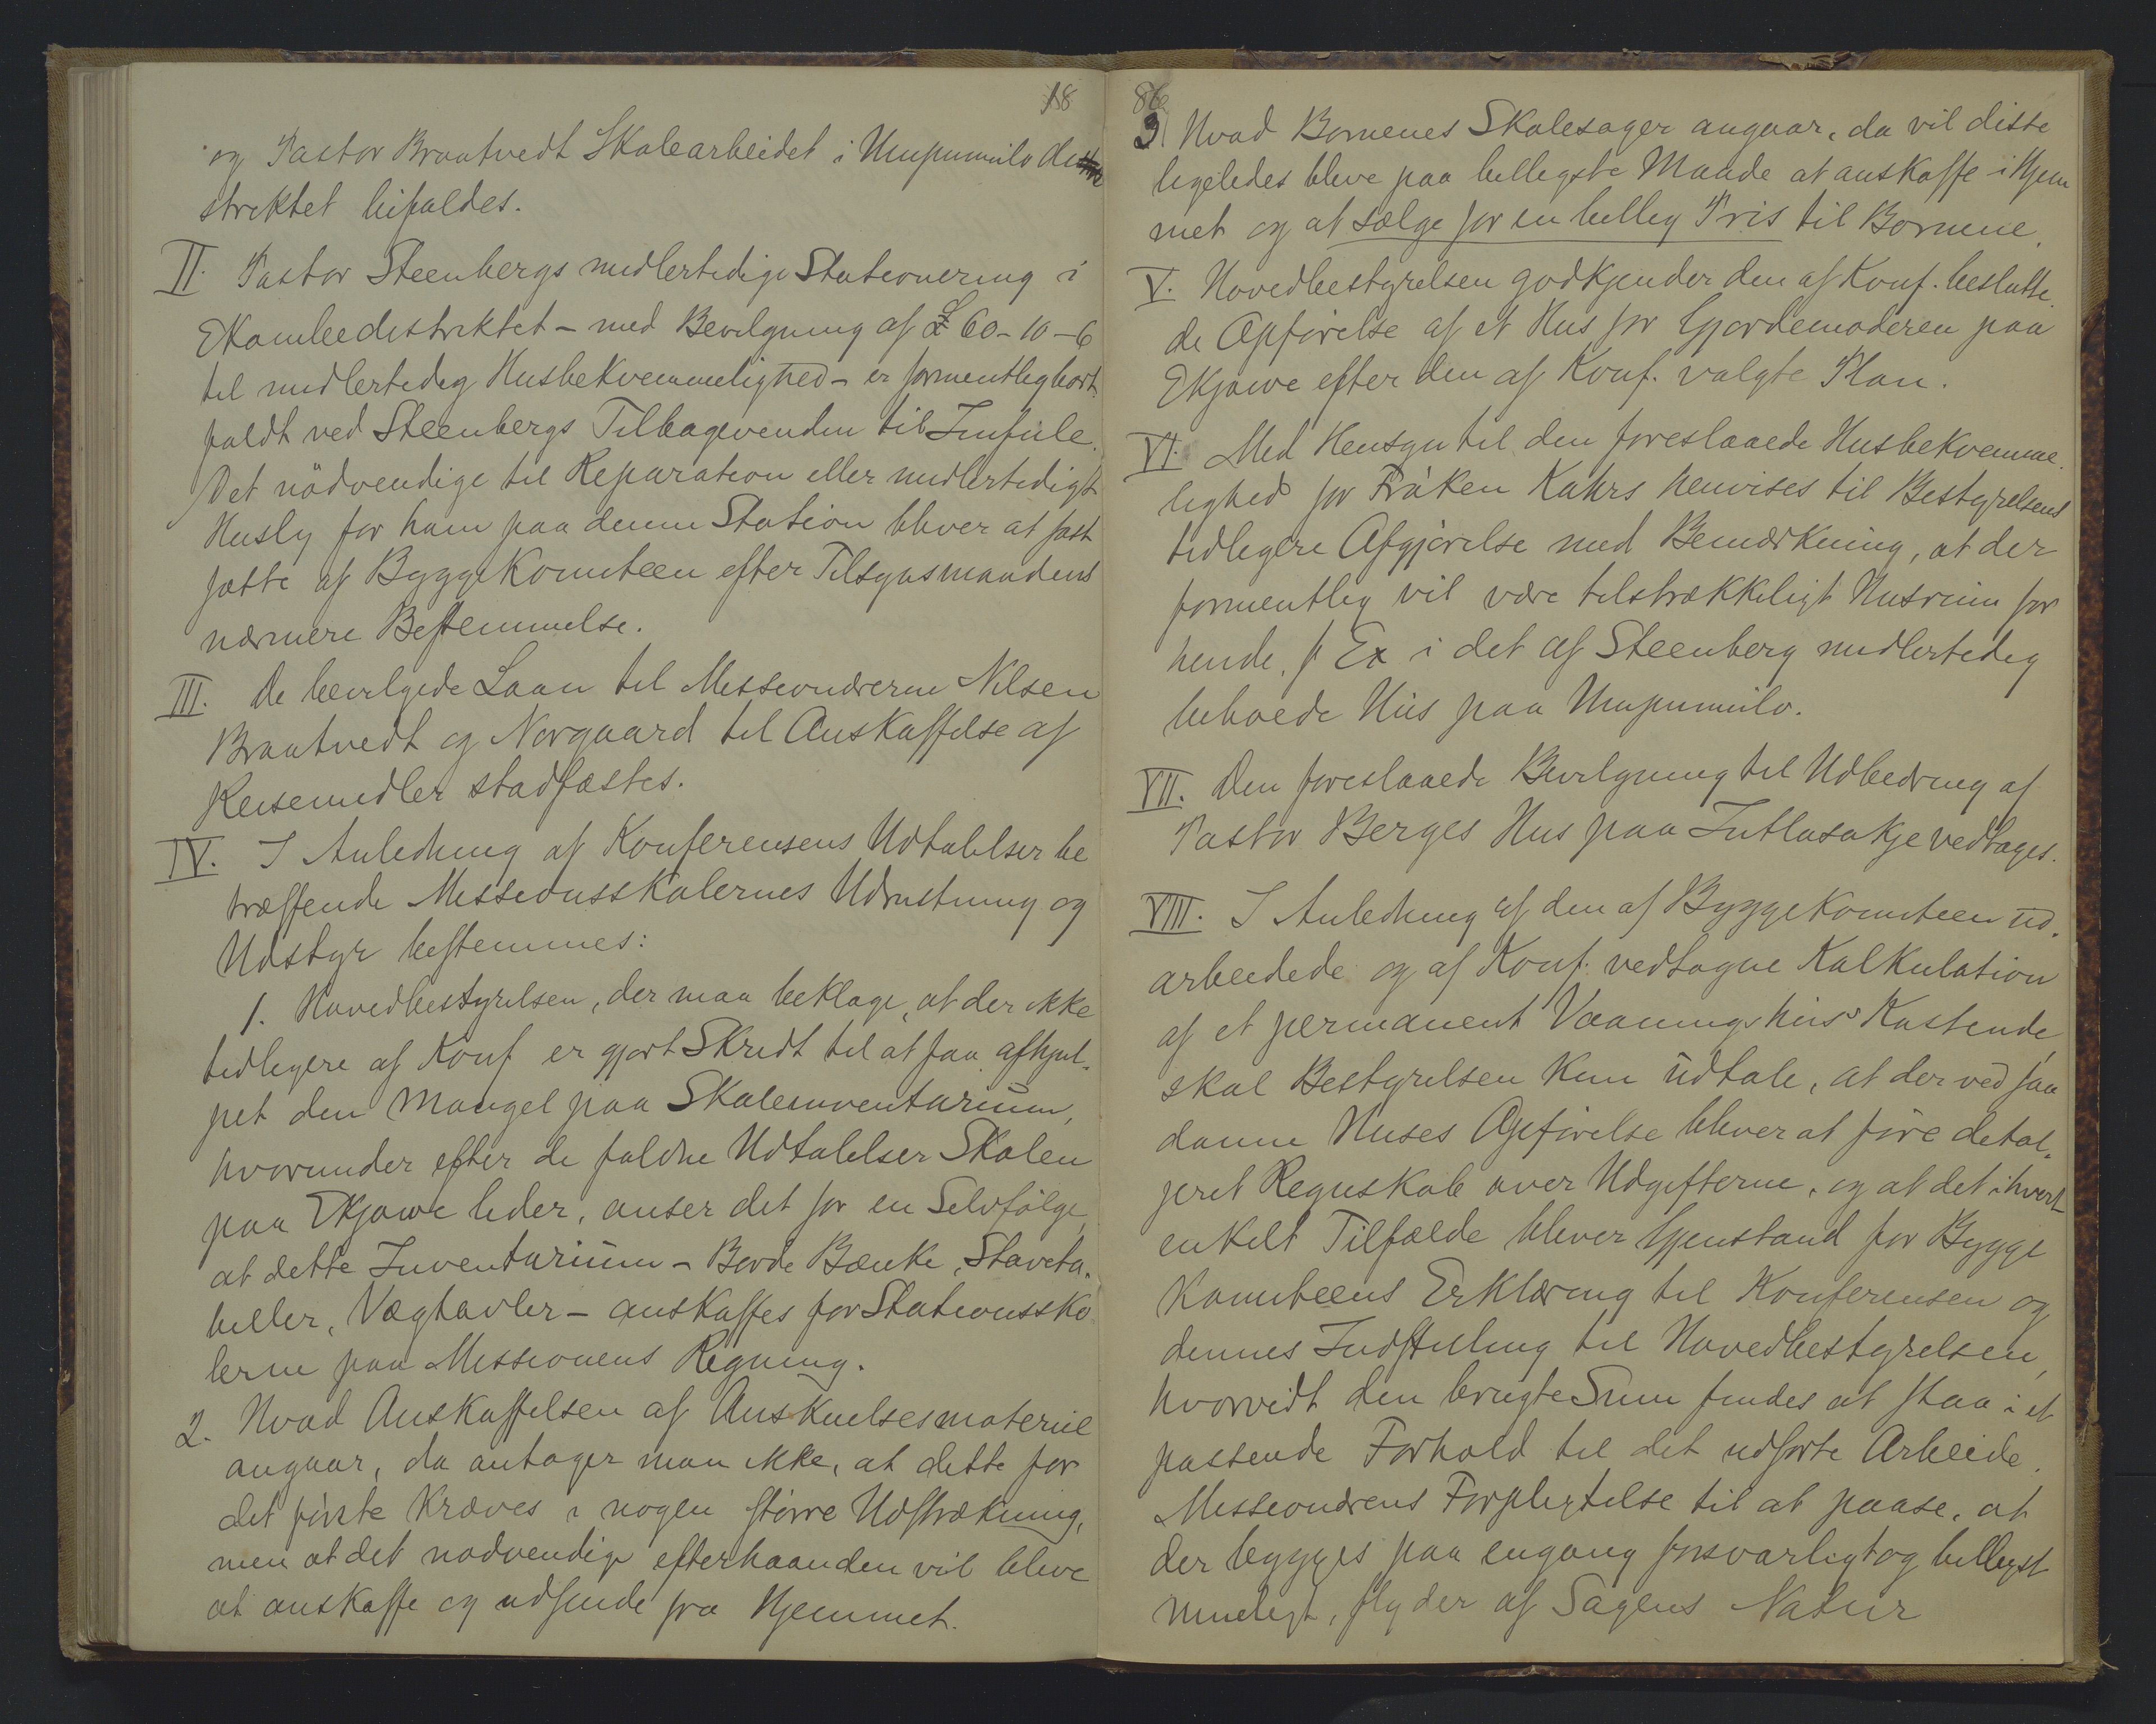 18
og Pastor Braatvedt Skolearbeidet i Umpumulo di
striktet bifaldes.
II. Pastor Steenbergs midlertidige Stationering i
Ekombedistriktet – med Bevilgning af £ 60–10–6
til midlertidig Husbekvemmelighed – er formentlig bort
faldt ved Steenbergs Tilbagevenden til Imfule.
Det nödvendige til Reparation eller midlertidigt
Husly for ham paa denne Station bliver at fast
sætte af Byggekomiteen efter Tilsynsmandens
nærmere Bestemmelse.
III. De bevilgede Laan til Missionærerne Nilsen
Braatvedt og Norgaard til Anskaffelse af
Reisemidler stadfæstes.
IV. I Anledning af Konferensens Udtalelser be
træffende Missionsskolernes Udrustning og
Udstyr bestemmes:
1. Hovedbestyrelsen, der maa beklage, at der ikke
tidligere af Konf er gjort Skridt til at faa afhjul-
pet den Mangel paa Skoleinventarium,
hvorunder efter de faldne Udtalelser Skolen
paa Ekjowe lider, anser det for en Selvfölge,
at dette Inventarium – Borde Bænke, Staveta-
beller, Vægtavler – anskaffes for Stationssko
lerne paa Missionens Regning.
2. Hvad Anskaffelsen af Anskuelsesmateriel
angaar, da antager man ikke, at dette for
det förste kræves i nogen större Udstrækning,
men at det nodvendige efterhaanden vil blive
at anskaffe og udsende fra Hjemmet.
86
3 Hvad Bornenes Skolesager angaar, da vil disse
ligeledes blive paa billigste Maade at anskaffe i Hjem
met og at sælge for en billig Pris til Bornene.
V. Hovedbestyrelsen godkjender den af Konf. beslutte-
de Opförelse af et Hus for Gjordemoderen paa
Ekjowe efter den af Konf. valgte Plan.
VI. Med Hensyn til den foreslaaede Husbekvemme-
lighed for Fröken Kahrs henvises til Bestyrelsens
tidligere Afgjörelse med Bemærkning, at der
formentlig vil være tilstrækkeligt Husrum for
hende, f Ex i det af Steenberg midlertidig
beboede Hus paa Umpumulo.
VII. Den foreslaaede Bevilgning til Udbedring af
Pastor Berges Hus paa Intlasakje vedtages.
VIII. I Anledning af den af Byggekomiteen ud-
arbeidede og af Konf. vedtagne Kalkulation
af et permanent Vaaningshus' Kostende,
skal Bestyrelsen kun udtale, at der ved saa
danne Huses Opförelse bliver at före detal-
jeret Regnskab over Udgifterne, og at det i hvert
enkelt Tilfælde bliver Gjenstand for Bygge
komiteens Erklæring til Konferensen og
dennes Indstilling til Hovedbestyrelsen,
hvorvidt den brugte Sum findes at staa i et
passende Forhold til det udforte Arbeide.
Missionærens Forpligtelse til at paase, at
der bygges paa engang forsvarligt og billigst
mueligt, flyder af Sagens Natur